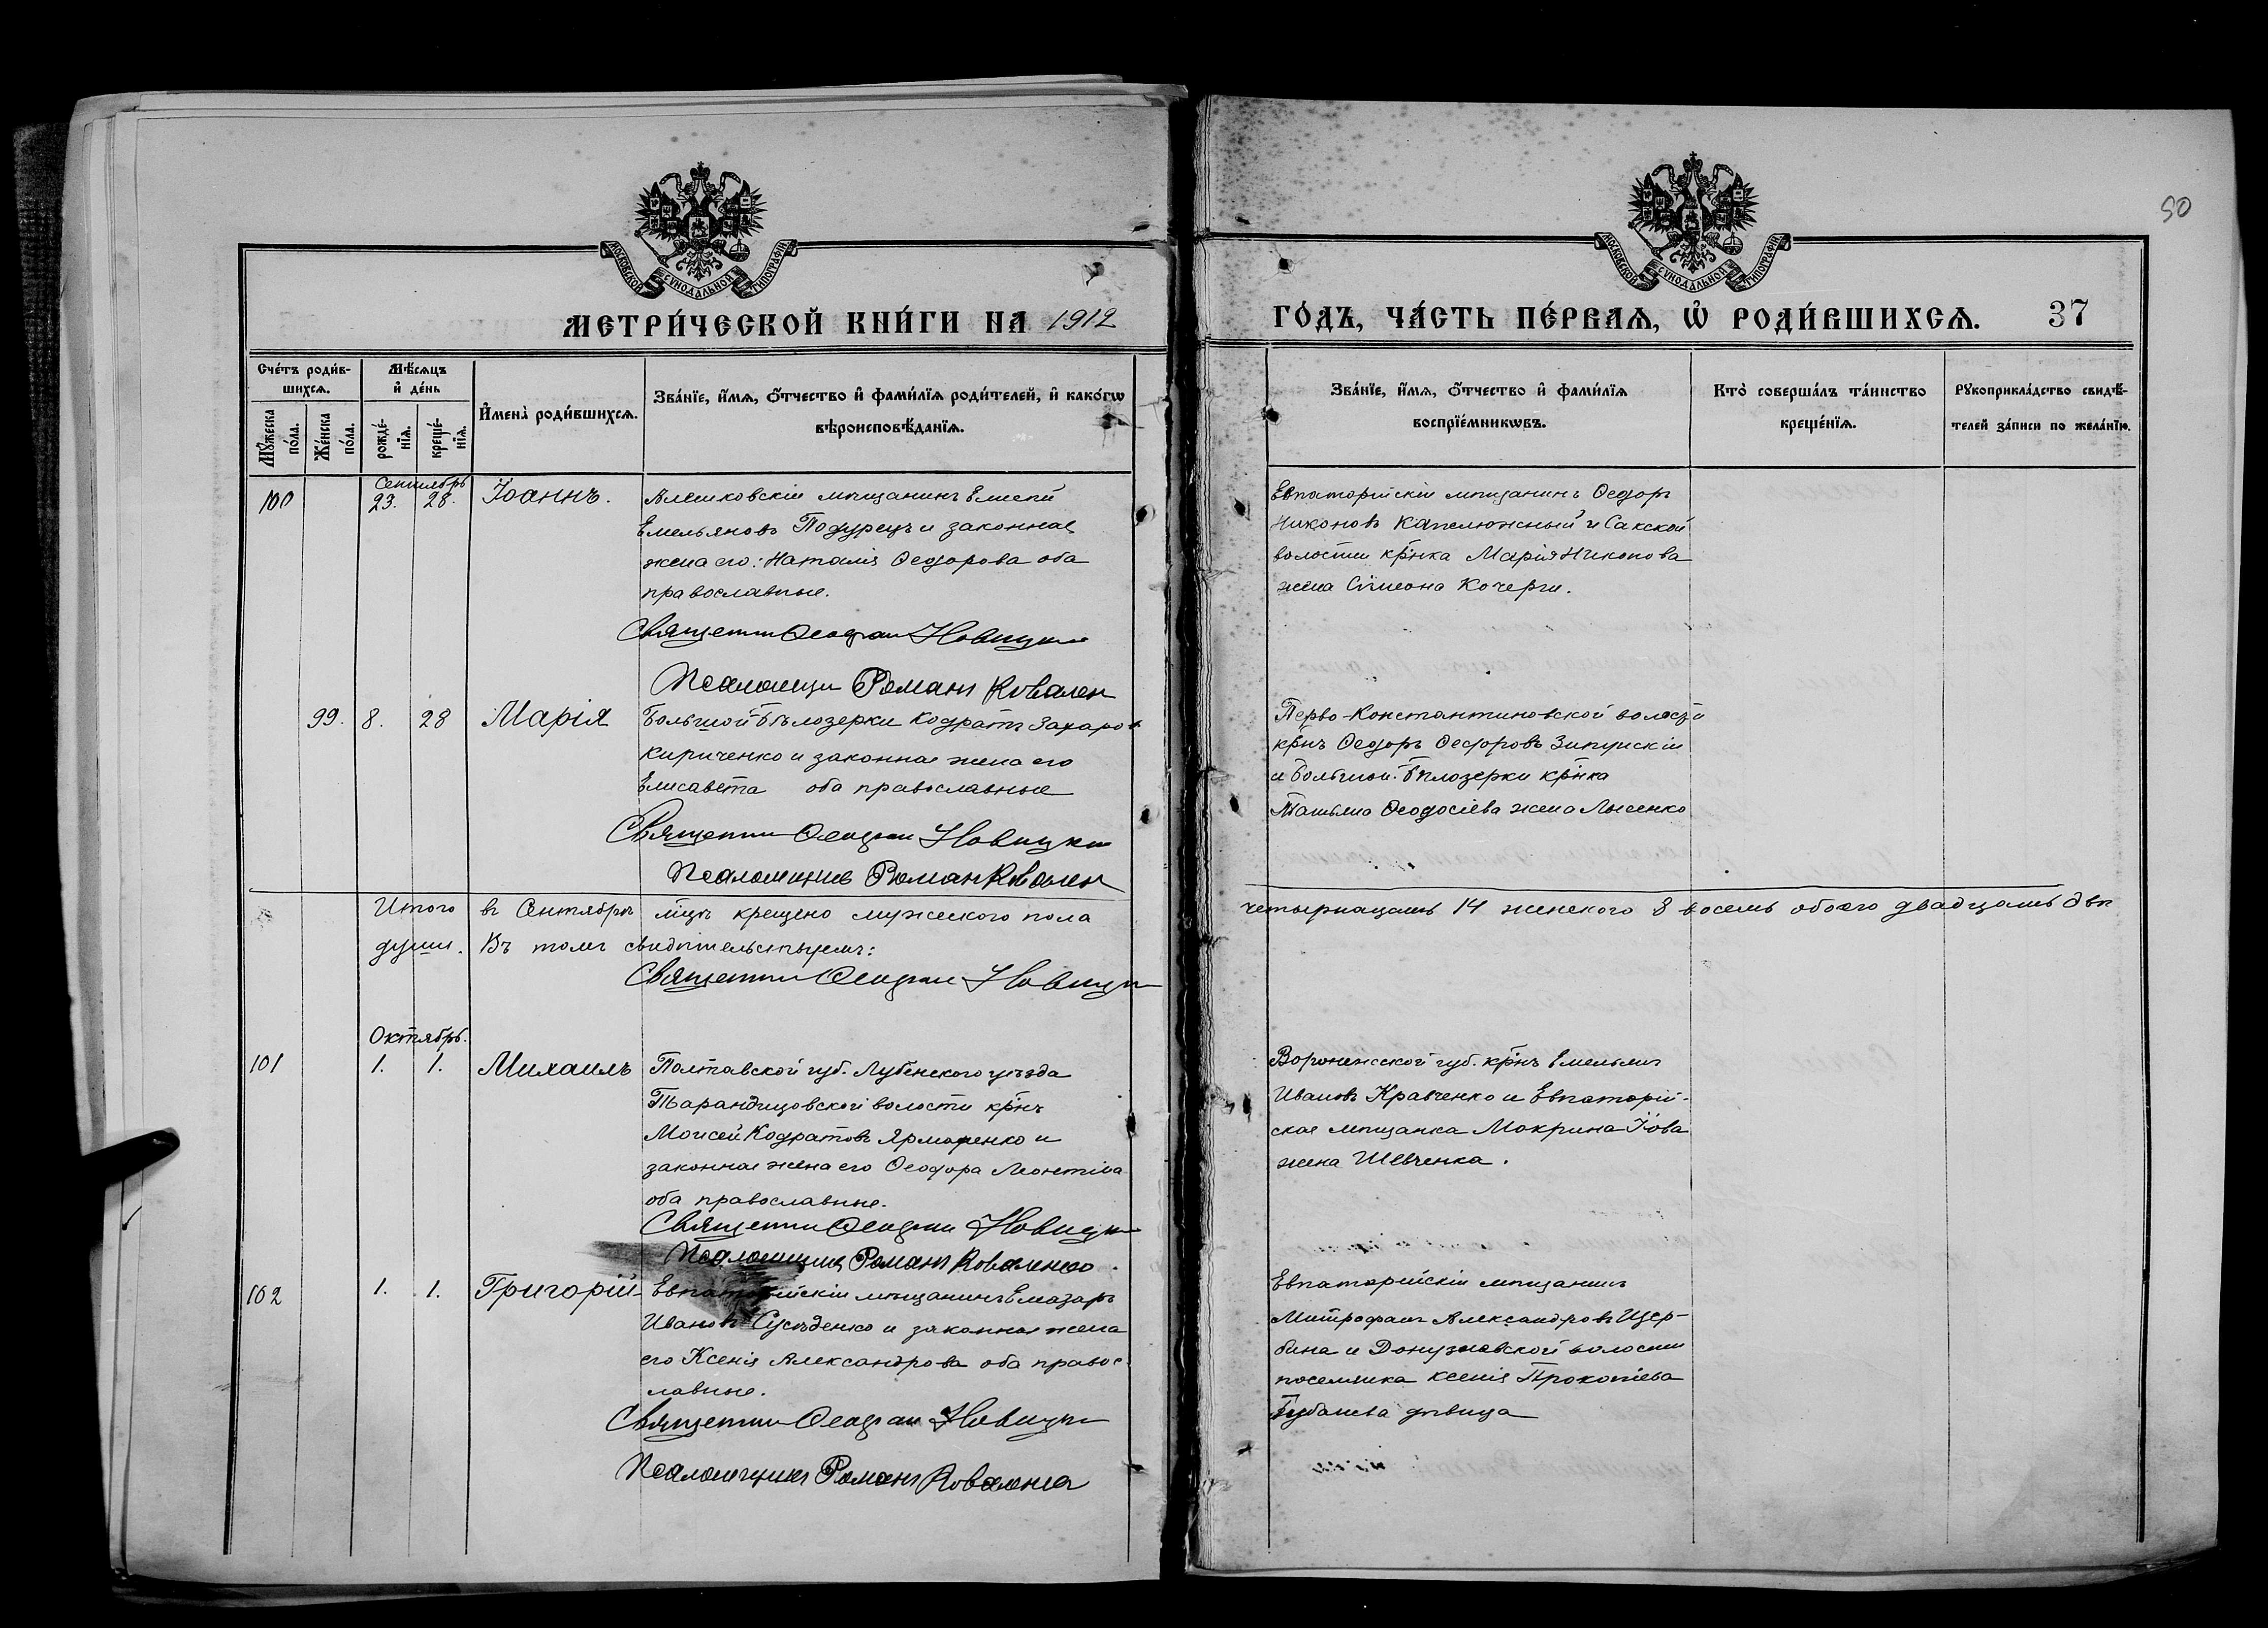 50
МОСКОВСКОЙ СѴНОДАЛЬНОЙ ТИПОГРАФІИ
МОСКОВСКОЙ СѴНОДАЛЬНОЙ ТИПОГРАФІИ
МЕТРИ́ЧЕСКОЙ КНИ́ГИ НА 1912
ГО́ДЪ, ЧА́СТЬ ПЕ́РВАѦ, Ѡ҆ РОДИ́ВШИХСѦ. 37
Сче́тъ роди́в-
шихсѧ.
Мꙋ́жеска по́ла.
Же́нска по́ла.
Мѣ́сѧцъ и҆ де́нь
рожде́-нїѧ.
креще́-нїѧ.
И҆мена̀ роди́вшихсѧ.
Зва́нїе, и҆́мѧ, ѻ҆́тчество и҆ фами́лїѧ роди́телей, и҆ како́гѡ
вѣроисповѣ́данїѧ.
Зва́нїе, и҆́мѧ, ѻ҆́тчество и҆ фами́лїѧ
воспрїе́мникѡвъ.
Кто̀ соверша́лъ та́инство
креще́нїѧ.
Рꙋкоприкла́дство свидѣ́-
телей за́писи по жела́нїю.
Сентябрь
100 23. 28. Іоаннъ. Алешковскій мѣщанинъ
Емельяновъ Подурецъ и законная
жена его: Наталія Ѳеодорова оба
православные.
Священникъ Ѳеофан Новицкій
Псаломщикъ Романъ Ковален
Евпаторійскій мѣщанинъ Ѳеодоръ
Никоновъ Капелюжный и Сакской
волости кр-нка Марія Никонова
жена Сѵмеона Кочерги.
99. 8. 28 Марія Большой Бѣлозерки Кодратъ Захаров
Кириченко и законная жена его
Елисавета оба православные
Священникъ Ѳеофан Новицкій
Псаломщикъ Роман Ковален
Перво-Константиновской волости
кр-нъ Ѳеодоръ Ѳеодоровъ
и Большой Бѣлозерки кр-нка
Татьяна Ѳеодосіева жена Лысенко
Итого въ Сентябрѣ м-цѣ крещено мужеского пола четырнацать 14 женского 8 восемь обоего двадцать двѣ
души. Въ томъ свидѣтельствуемъ:
Священникъ Ѳеофан Новицкій
Октябрь.
101 1. 1. Михаилъ Полтавской губ. Лубенского уѣзда
Тарандицовской волости кр-нъ
Моисей Кодратовъ Ярмаренко и
законная жена его Ѳеодора Леонтіева
оба православные.
Священникъ Ѳеофан Новицкій
Псаломщикъ Романъ Коваленко.
Воронежской губ. кр-нъ Емельянъ
Ивановъ Кравченко и Евпаторій-
ская мѣщанка Макрина Іова
жена Шевченка.
102 1. 1. Григорій Евпаторійскій мѣщанинъ Елазаръ
Ивановъ Сусѣденко и законная жена
его Ксенія Александрова оба правос-
лавные.
Священникъ Ѳеофан Новицкій
Псаломщикъ Романъ Коваленко
Евпаторійскій мѣщанинъ
Митрофанъ Александровъ Щер-
бина и Донузлавской волости
поселянка Ксенія Прокопіева
дѣвица